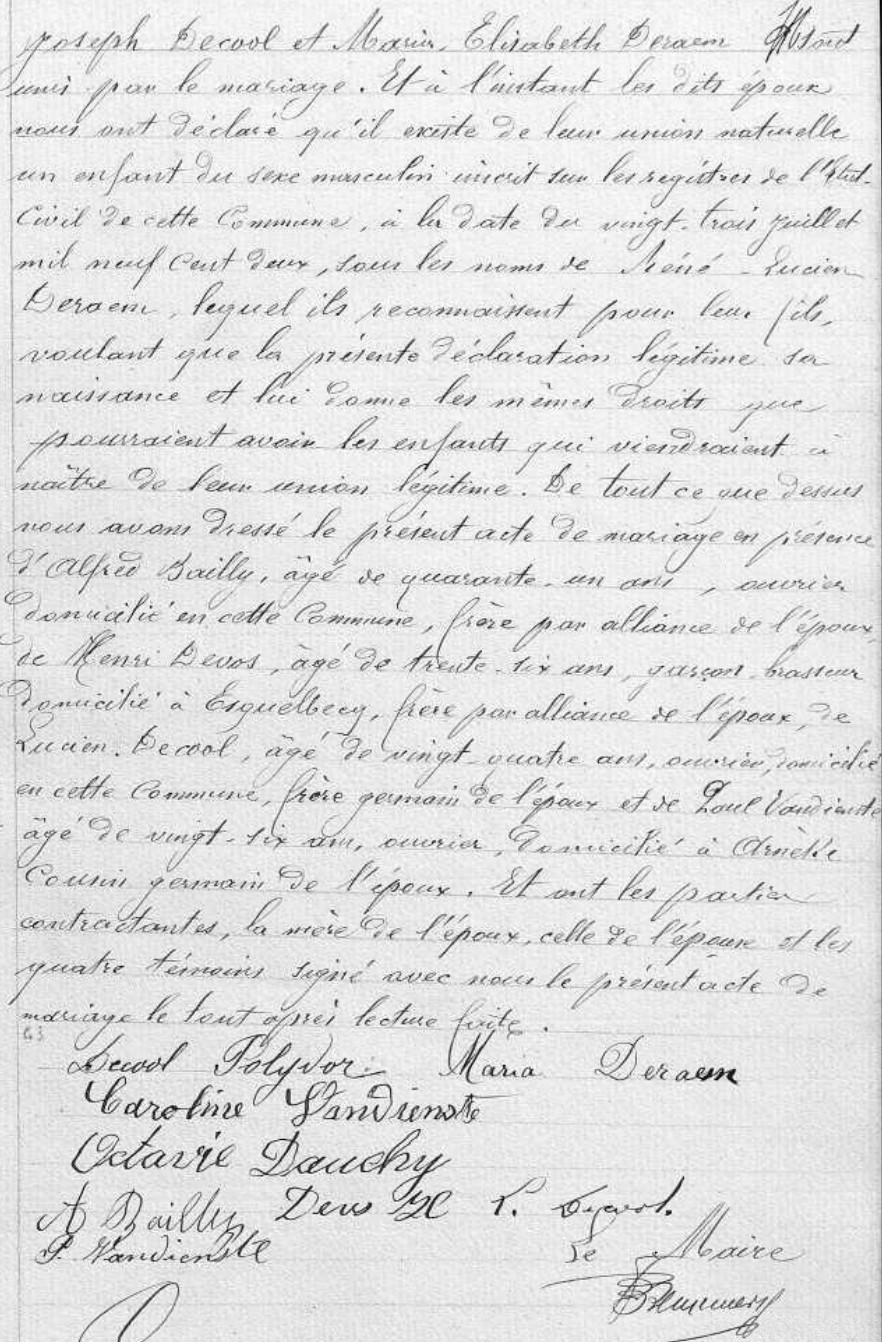 Joseph Decool et Maria, Elisabeth Deraem sont
unis par le mariage. Et à l'instant les dits époux
nous ont déclaré qu'il existe de leur union naturelle
un enfant du sexe masculin inscrit sur les registres de l'Etat-
Civil de cette Commune, à la date du vingt-trois juillet
mil neuf cent deux, sous les noms de René-Lucien
Deraem, lequel ils reconnaissent pour leur fils,
voulant que la présente déclaration légitime sa
naissance et lui donne les mêmes droits que
pourraient avoir les enfants qui viendraient à
naître de leur union légitime. De tout ce que dessus
nous avons dressé le présent acte de mariage en présence
d'Alfred Bailly, âgé de quarante-un ans, ouvrier
domicilié en cette Commune, frère par alliance de l'époux,
de Henri Devos, âgé de trente-six ans, garçon-brasseur
domicilié à Esquelbecq, frère par alliance de l'époux, de
Lucien Decool, âgé de vingt-quatre ans, ouvrier, domicilié
en cette Commune, frère germain de l'époux et de Paul Vandienste
âgé de vingt-six ans, ouvrier, domicilié à Arnèke
Cousin germain de l'époux. Et ont les parties
contractantes, la mère de l'époux, celle de l'épouse et les
quatre témoins signé avec nous le présent acte de
mariage le tout après lecture faite.
Decool Polydor Maria Deraem
Caroline Vandienste
Octavie Dauchy
A Bailly Devos H L. Decool.
P. Vandienste Le Maire